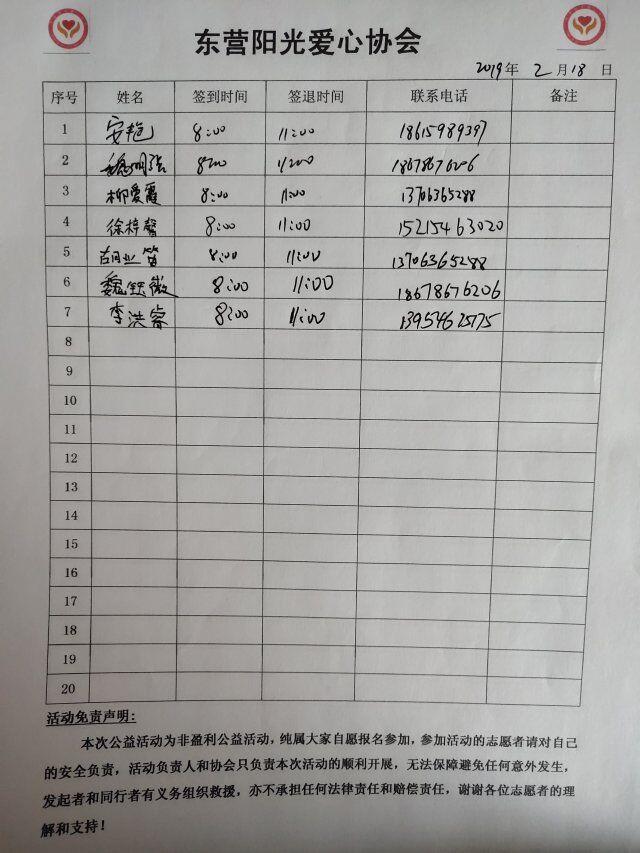 东营阳光爱心协会
2019年 2月18日
序号 姓名 签到时间 签退时间 联系电话 备注
1 安艳 8:00 11:00
2 魏明强 8:00 11:00
3 柳爱霞 8:00 11:00 13706365288
4 徐梓馨 8:00 11:00 15215463020
5 8:00 11:00 13706365288
6 魏钰薇 8:00 11:00 18678676206
7 李洪睿 8:00 11:00
8
9
10
11
12
13
14
15
16
17
18
19
20
活动免责声明:
本次公益活动为非盈利公益活动，纯属大家自愿报名参加，参加活动的志愿者请对自己
的安全负责，活动负责人和协会只负责本次活动的顺利开展，无法保障避免任何意外发生，
发起者和同行者有义务组织救援，亦不承担任何法律责任和赔偿责任，谢谢各位志愿者的理
解和支持！